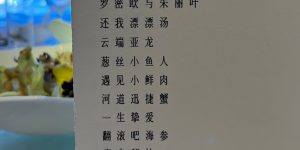 罗密欧与朱丽叶
还我漂漂汤
云端亚龙
葱丝小鱼人
遇见小鲜肉
河道迅捷蟹
一生挚爱
翻滚吧海参